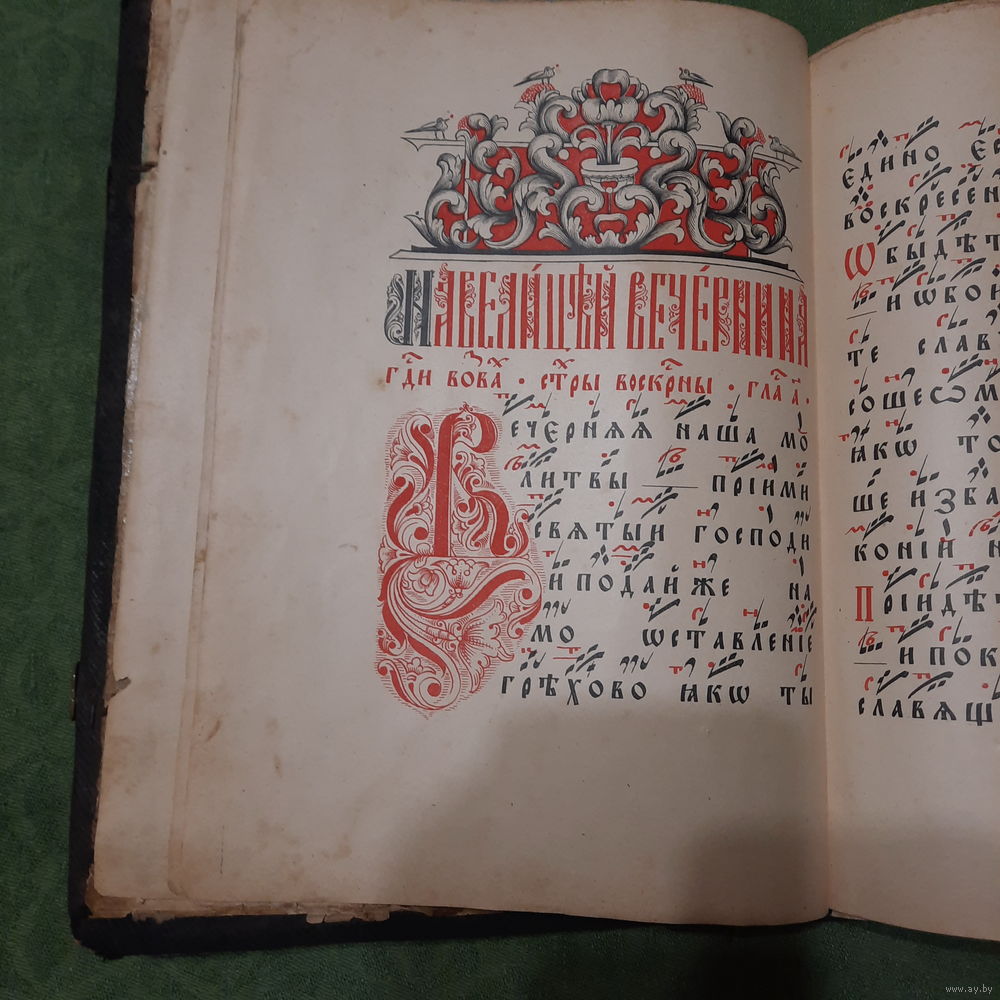 На велицѣй вечерни на
гд҇и возвах. ст҇ры воскрны. гла а҃.
Вечерняѧ наша мо
литвы прїими
свѧтыи господи
и подай же на
мо ѡставленїе
грѣхово ꙗкѡ ты
едино
ѿ
быдѣт
и ѡбои
те слав
ꙗкѡ то
ше изва
конїй н
прїидѣ
и пок
славѧщ
www.ay.by